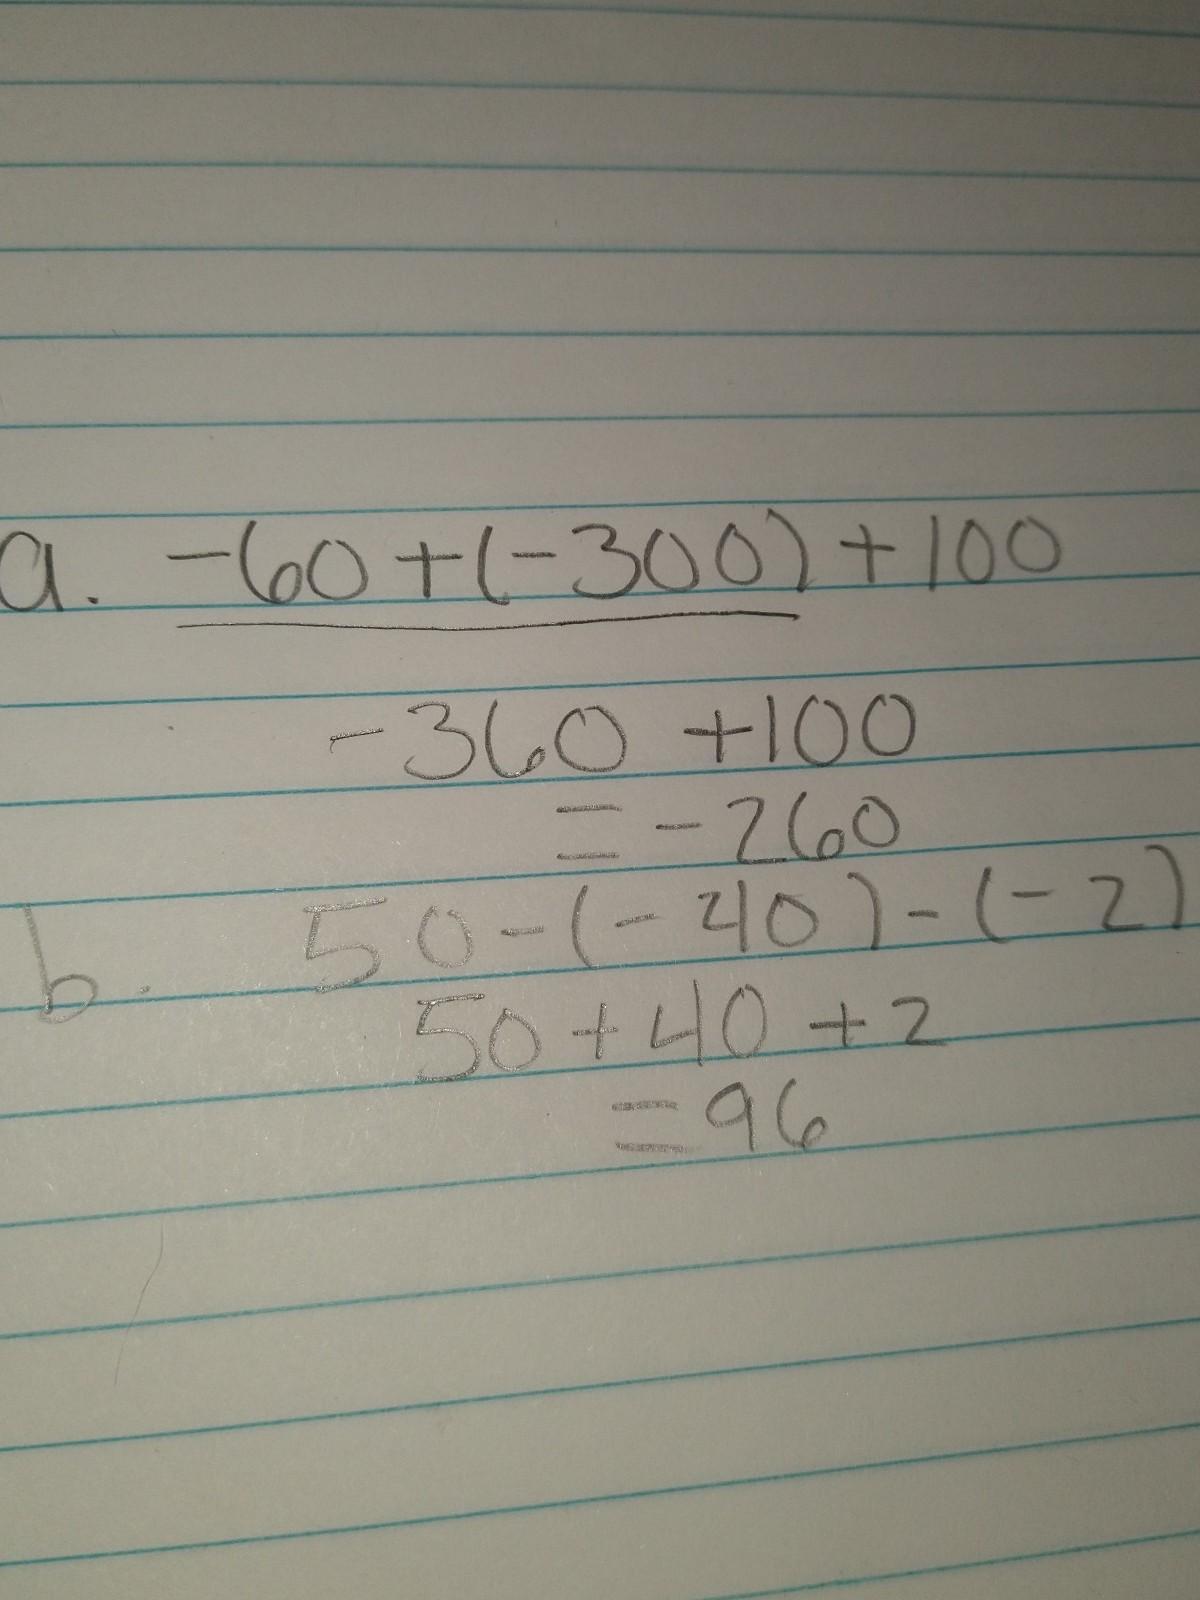 a. -60+(-300)+100
-360 +100
= -260
b. 50-(-40)-(-2)
50+40+2
=96